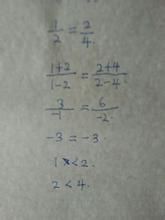 1/2 = 2/4.
1+2/1-2 = 2+4/2-4
3/-1 = 6/-2.
-3 = -3.
1 < 2.
2 < 4.